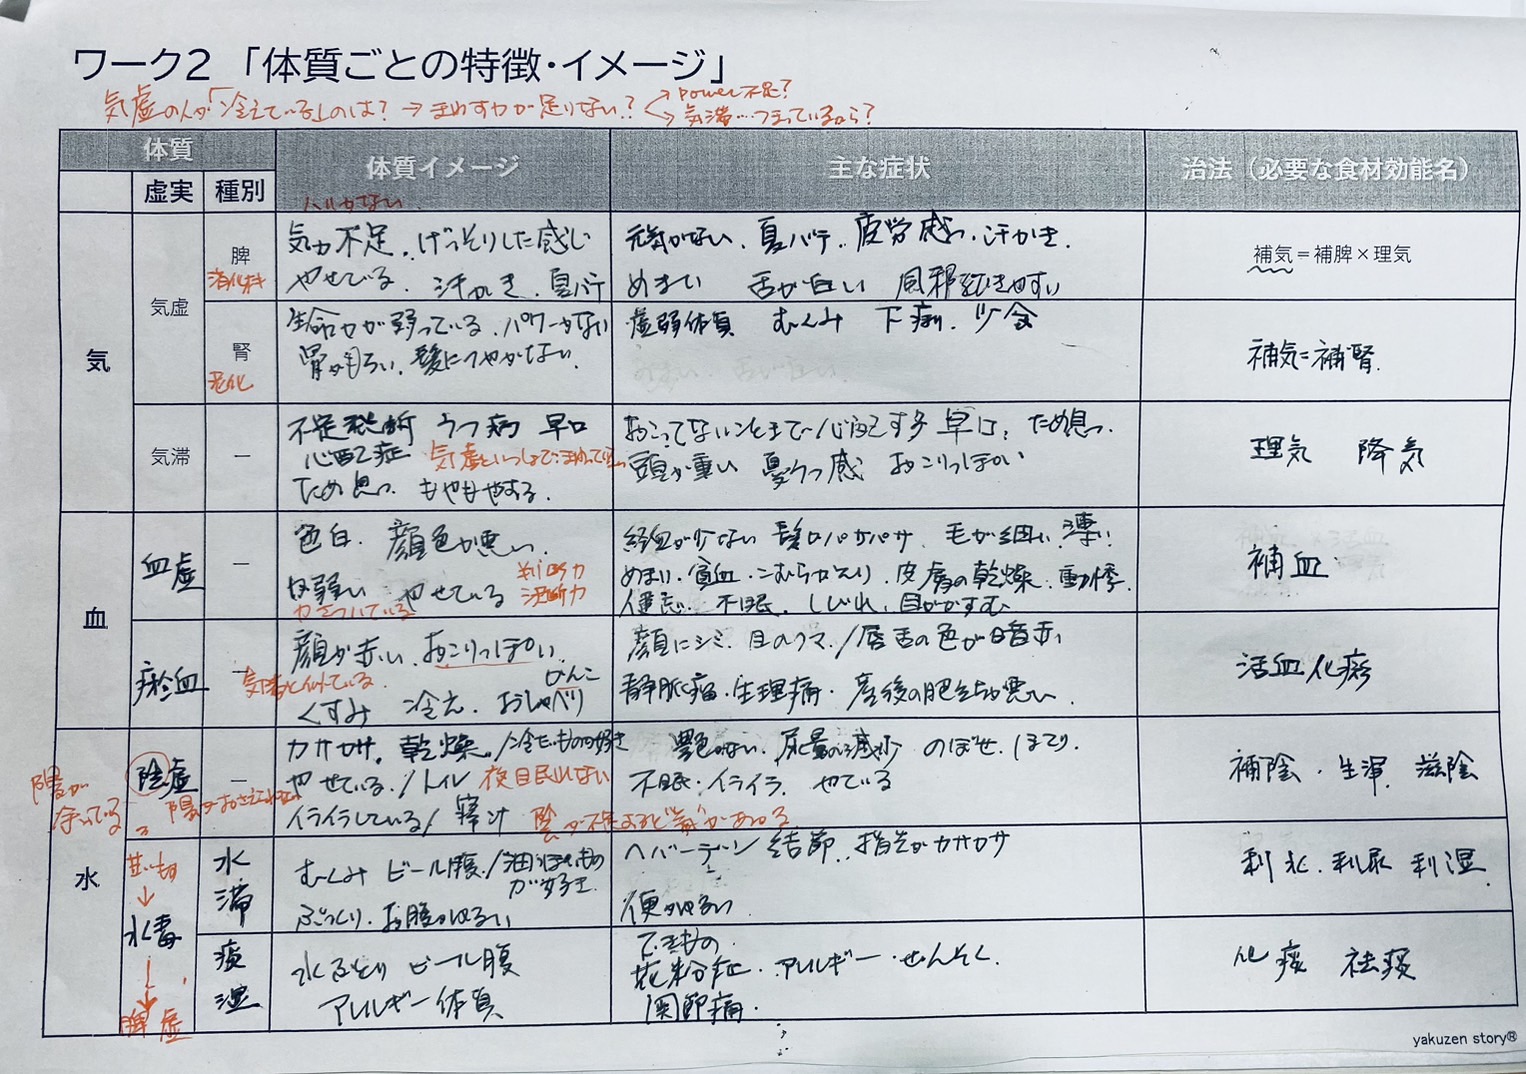 ワーク2 「体質ごとの特徴・イメージ」
気虚の人が「冷えている」のは? → 温めす力が足りない?
power不足?
気滞…つまっているから?
体質
体質イメージ
主な症状
治法(必要な食材効能名)
虚実
種別
ハリがない
気
気虚
脾
消化
気力不足. げっそりした感じ
やせている. 汗かき. 夏バテ
元気がない. 夏バテ. 疲労感. 汗かき.
めまい 舌が白い 風邪をひきやすい
補気=補脾×理気
腎
老化
生命力が弱っている. パワーがない
骨がもろい. 髪につやがない.
虚弱体質 むくみ 下痢. 少食
補気=補腎.
気滞
ー
うつ病 早口
心配症 気虚といっしょで
ため息. もやもやする.
おこってないことまで心配する 早口. ため息.
頭が重い 憂うつ感 おこりっぽい
理気 降気
血
血虚
ー
色白. 顔色が悪い.
やせている
判断力
決断力
経血が少ない 髪パサパサ 毛が細い. 薄い
めまい. 貧血. こむらがえり. 皮膚の乾燥. 動悸.
健忘. 不眠. しびれ. 目がかすむ
補血
瘀血
気滞と似ている.
顔が赤い. おこりっぽい.
びんこ
くすみ 冷え. おしゃべり
顔にシミ. 目のクマ. /唇舌の色が暗赤
静脈瘤. 生理痛. 産後の肥立ちが悪い.
活血化瘀
水
陰虚
ー
陽が
余っている
カサカサ. 乾燥. /冷たいものが好き
やせている. / 夜眠れない
イライラしている/ 寝汗
艶がない. 尿量の減少 のぼせ. ほてり.
不眠. イライラ. やせている
補陰. 生津. 滋陰
甘いもの
↓
水毒
↓
脾虚
水滞
むくみ ビール腹. /油っぽいもの
が好き.
ぷっくり. お腹がゆるい
ヘバーデン結節. 指先がカサカサ
便がゆるい.
利水. 利尿 利湿.
痰湿
水ぶとり ビール腹
アレルギー体質
できもの.
花粉症. アレルギー. ぜんそく.
関節痛.
化痰 祛痰
yakuzen story®